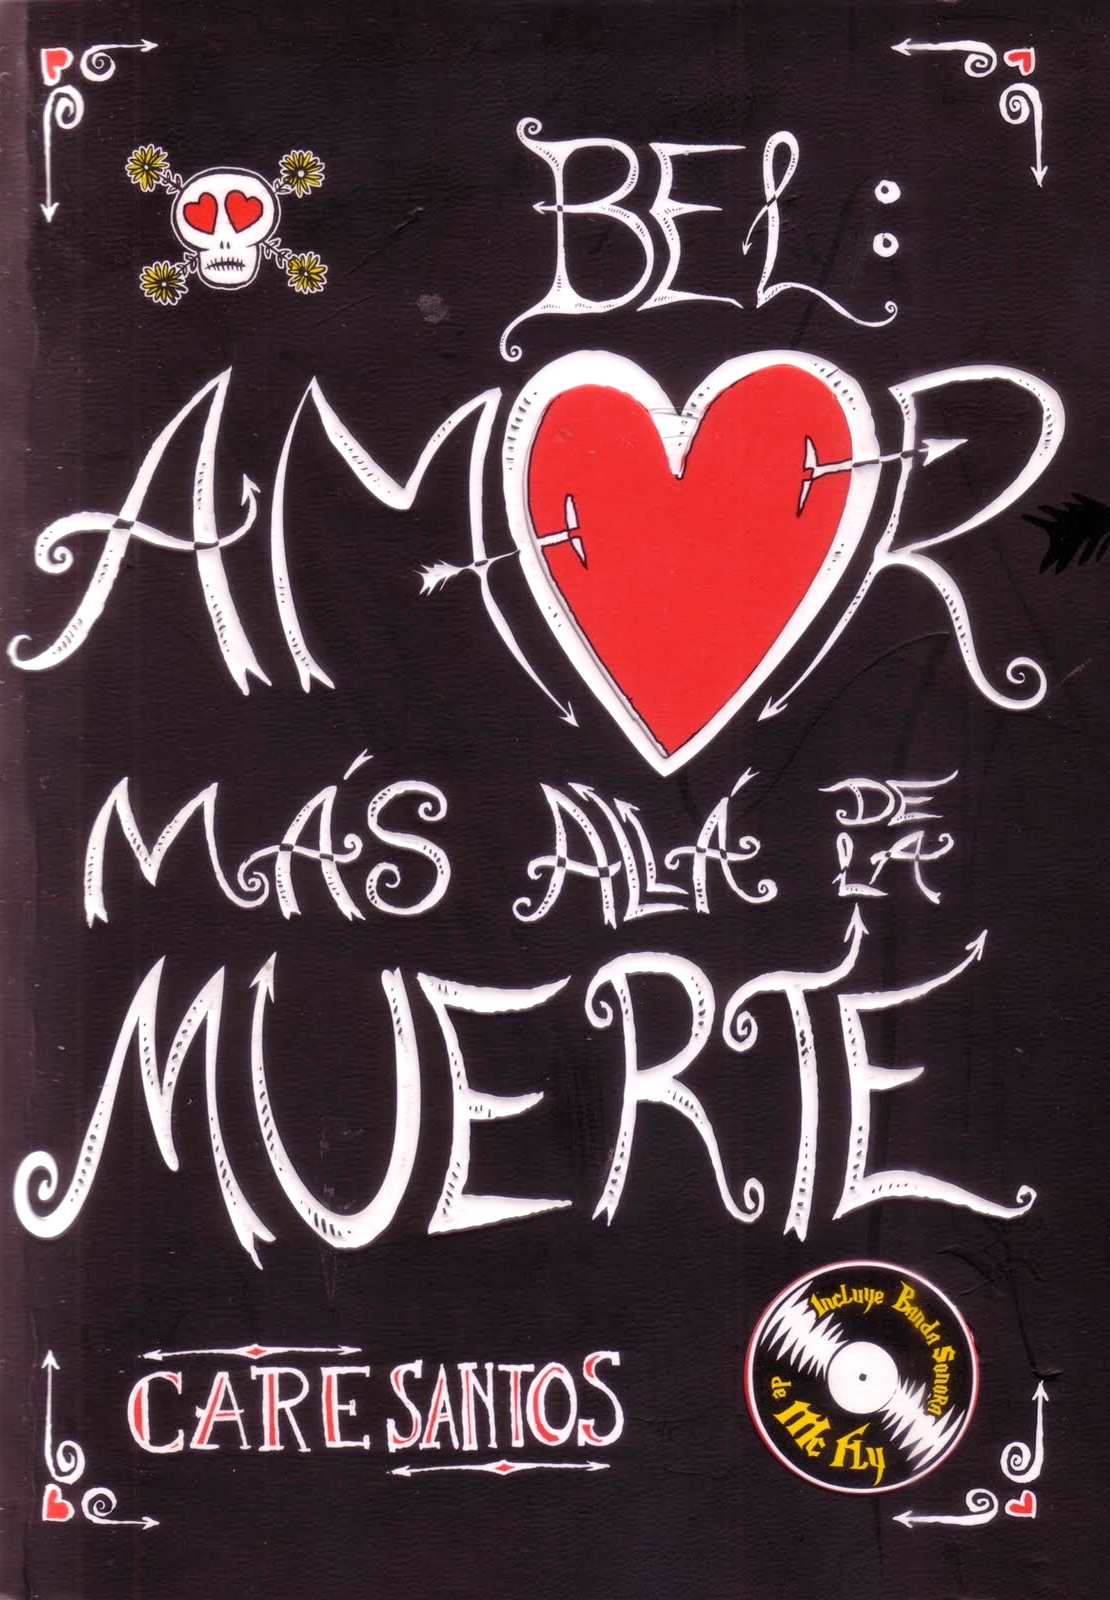 BEL:
AMOR
MÁS ALLÁ DE
LA
MUERTE
CARE SANTOS
Incluye Banda Sonora
de Mc Fly